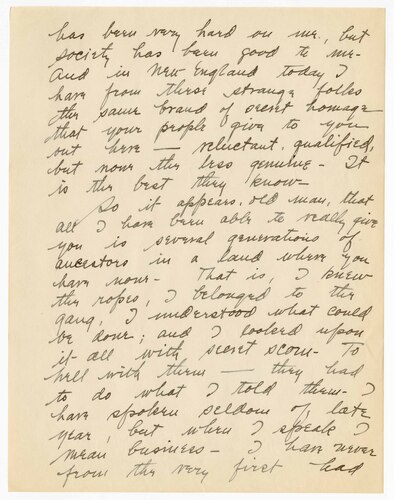 has been very hard on me, but
society has been good to me-
And in New England today I
have from these strange folks
the same brand of secret homage
that your people give to you
out here — reluctant, qualified,
but none the less genuine - It
is the best they know-
So it appears, old man, that
all I have been able to really give
you is several generations of
ancestors in a land where you
have none- That is, I knew
the ropes, I belonged to the
gang, I understood what could
be done; and I looked upon
it all with secret scorn- To
hell with them — they had
to do what I told them- I
have spoken seldom of late
year, but when I speak I
mean business- I have never
from the very first had